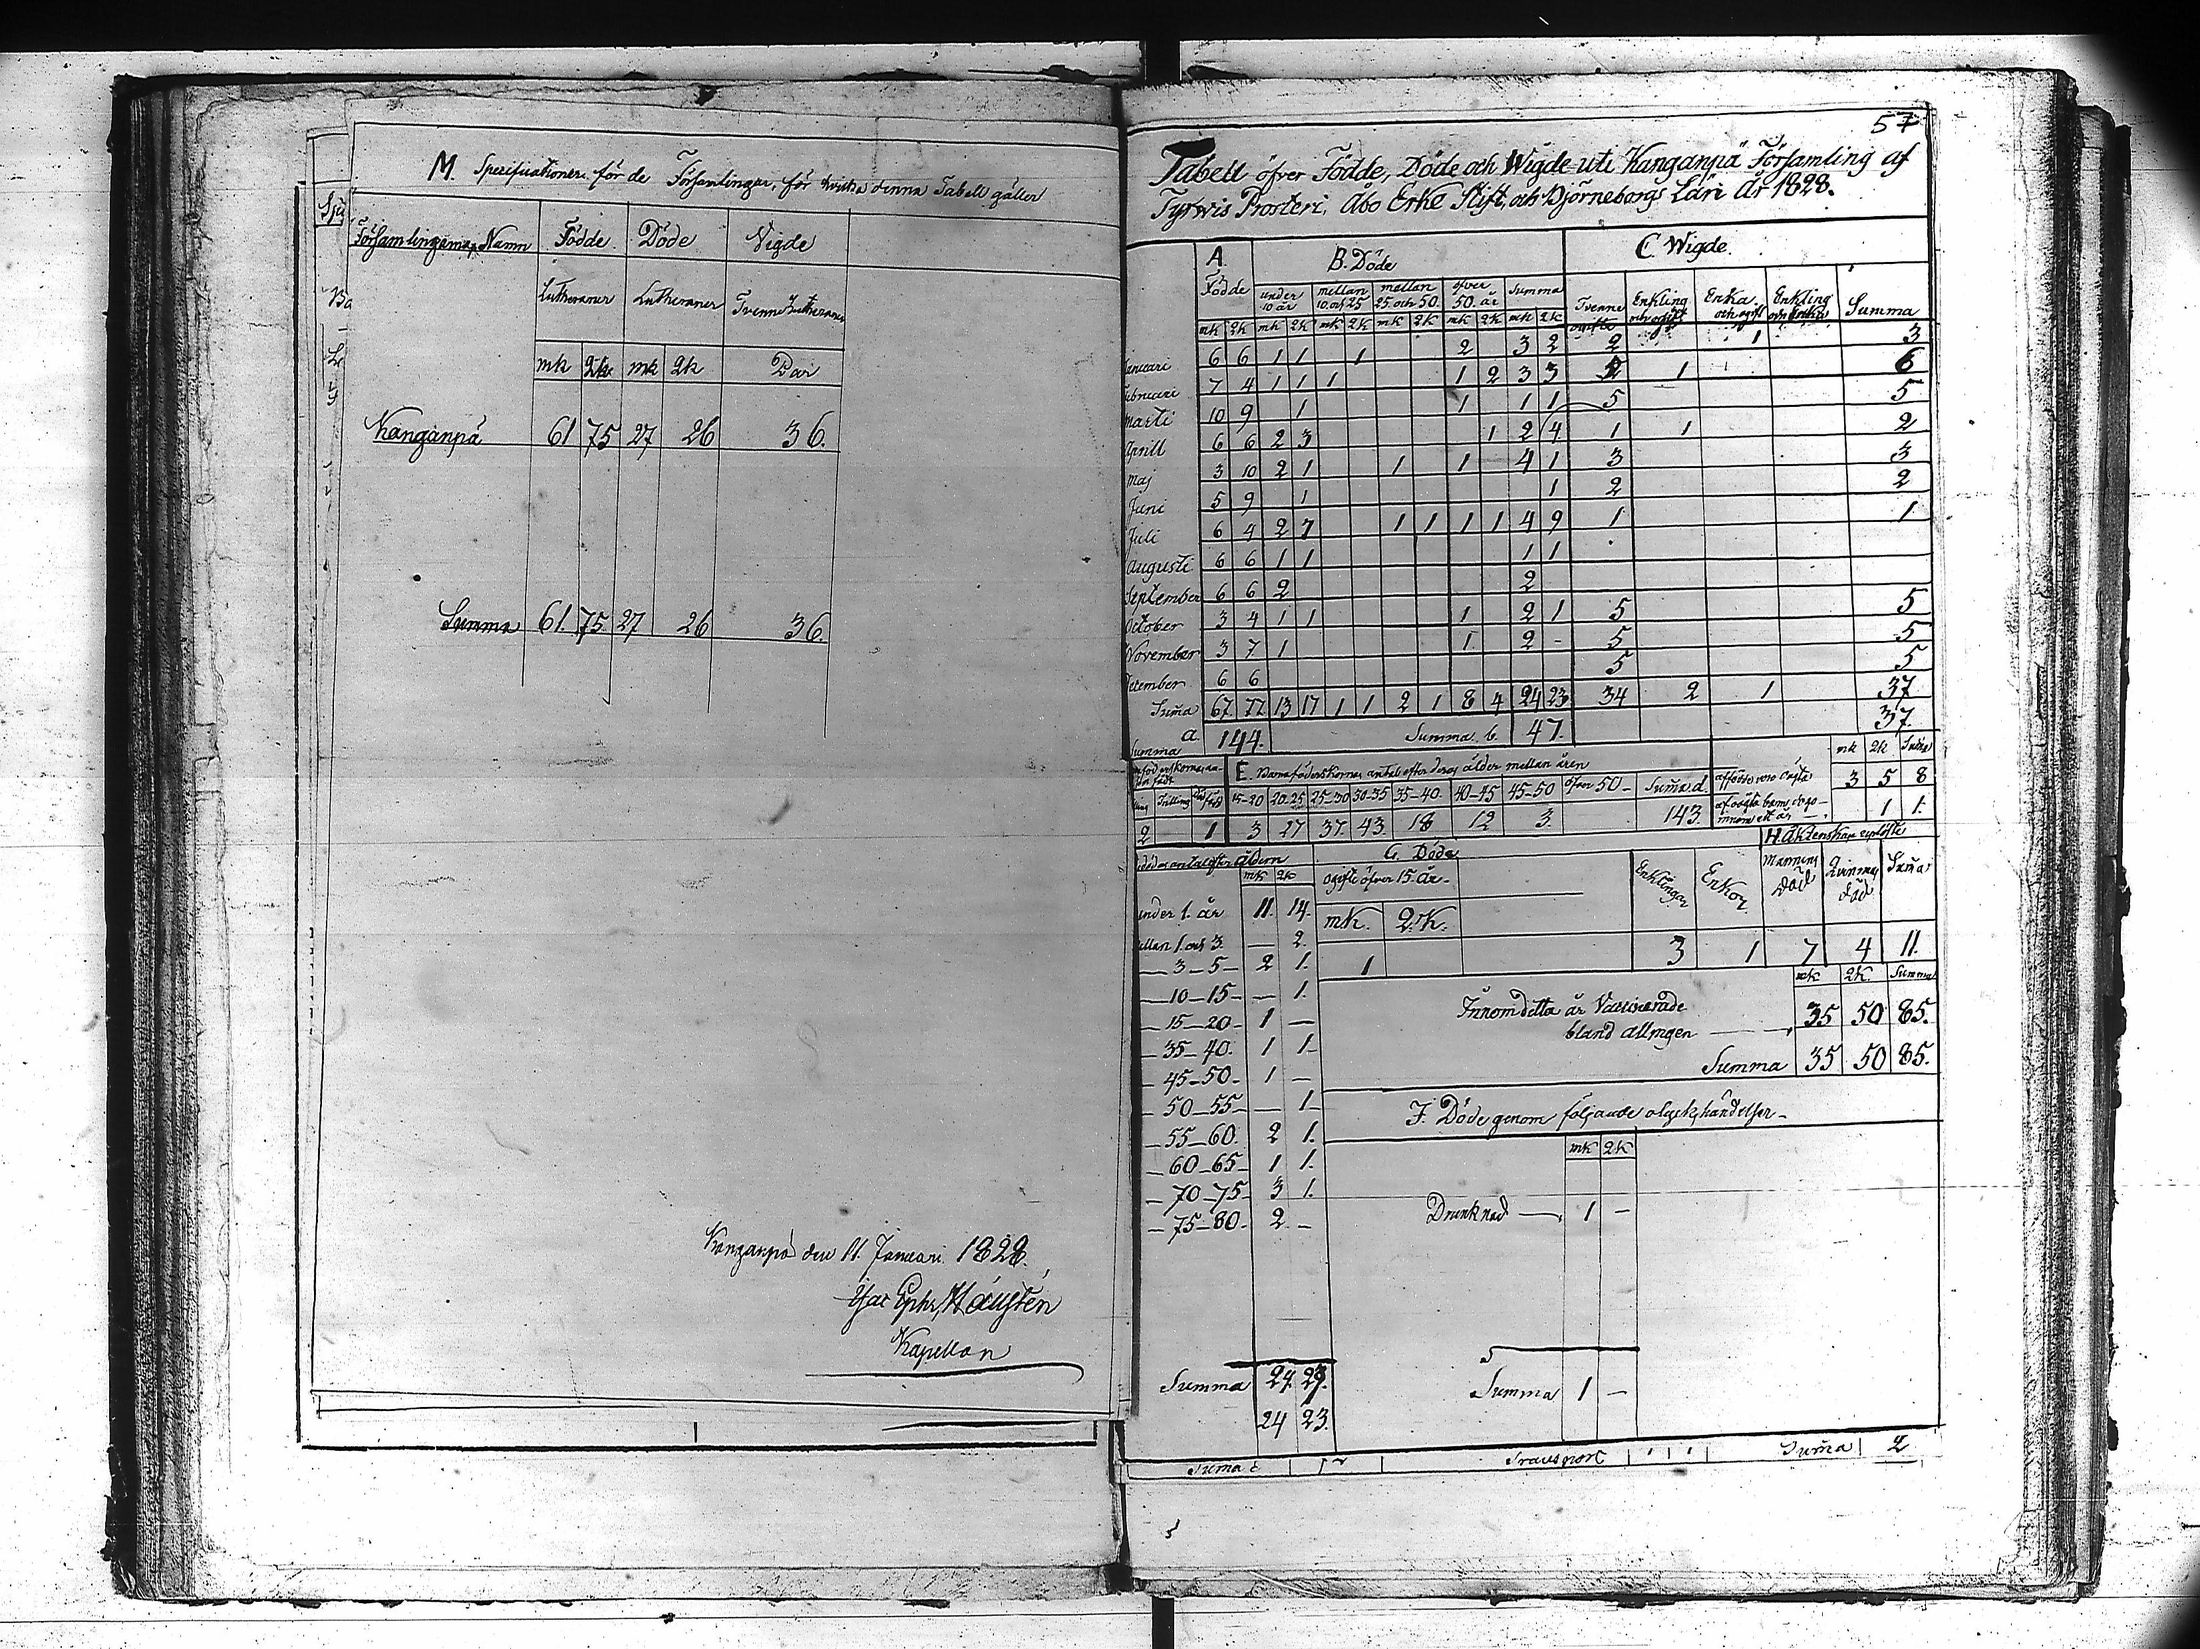 M. Specificationer för de Församlingar, för hvilka denna Tabell gäller
Församlingarnas Namn Födde Döde Vigde
Lutheraner Lutheraner Tvenne Lutheraner
mk 2k mk 2k Par
Kanganpä 61 75 27 26 36.
Summa 61. 75. 27 26 36.
Kanganpä den 11 Januari 1828.
Kapellan
57
Tabell öfver Födde, Döde och Wigde uti Kanganpä Församling af
Tyrwis Prosteri, Åbo Erke Stift, och Björneborgs Län År 1828.
A. Födde B. Döde C. Wigde.
under 10 år mellan 10 och 25 mellan 25 och 50. öfver 50. år Summa Tvenne ogifte Enkling och ogift Enka och ogift Enkling och Enka Summa
mk 2k mk 2k mk 2k mk 2k mk 2k mk 2k
Januari 6 6 1 1 1 2 3 2 2 1 3
Februari 7 4 1 1 1 1 2 3 3 1 6
Marti 10 9 1 1 1 1 5 5
Aprill 6 6 2 3 1 2 4 1 1 2
Maj 3 10 2 1 1 1 4 1 3 3
Juni 5 9 1 1 2 2
Juli 6 4 2 7 1 1 1 1 4 9 1 1
Augusti 6 6 1 1 1 1
September 6 6 2 2
October 3 4 1 1 1 2 1 5 5
November 3 7 1 1. 2 - 5 5
December 6 6 5 5
Suma 67. 77. 13 17 1 1 2 1 8 4 24 23 34 2 1 37
Summa a. 144. Summa b. 47. 37.
E. Barnaföderskornas antal efter deras ålder mellan åren
mk 2k Suma
15-20 20-25 25-30 30-35 35-40. 40-45 45-50 öfver 50- Suma d.
3 5 8
2 1 3 27 37. 43. 18 12 3. 143. 1 1.
G. Döde H. Äktenskap uplöste
mk 2k ogifte öfver 15 år- Enklingar Enkor. Mannens död Qvinnans död Suma
under 1. år 11. 14. mk. 2.k.
mellan 1. och 3. — 2. 1 3 1 7 4 11.
— 3-5- 2 1.
— 10-15- — 1. mk 2k. Summa
— 15-20- 1 — Innom detta år Vaccinerade
bland allmogen 35 50 85.
— 35-40. 1 1- Summa 35 50 85.
— 45-50- 1 —
— 50-55- — 1- F. Döde genom följande olyckshändelser-
— 55-60. 2 1. mk 2k
— 60-65- 1 1.
— 70-75- 3 1.
— 75-80- 2. - Drunknad 1 —
Summa Summa 1 —
24 23.
Suma c Transport Suma 2